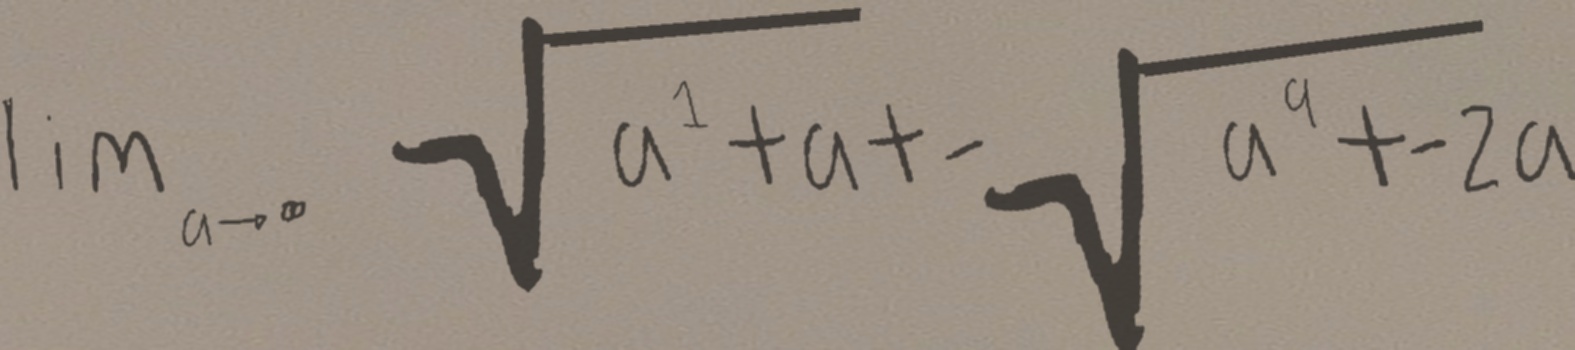 lim a→∞ √(a¹+a) + - √(a⁹+-2a)